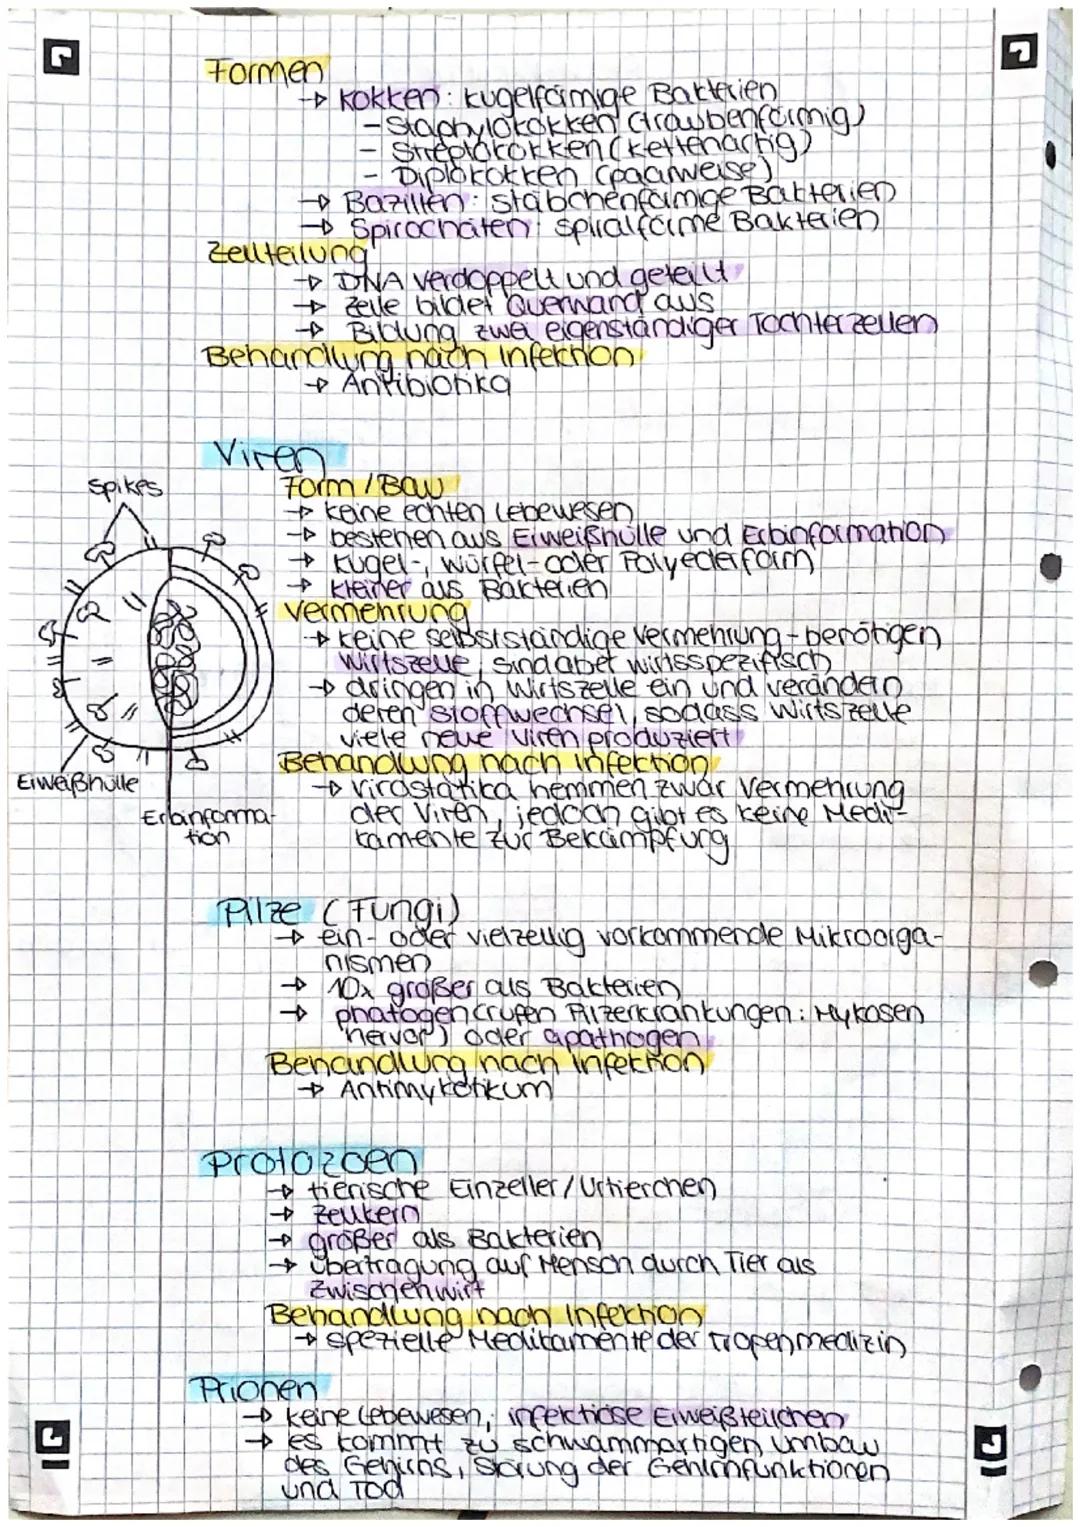 Formen
→ Kokken: kugelförmige Bakterien
- Staphylokokken (traubenförmig)
- Streptokokken (kettenartig)
- Diplokokken (paarweise)
→ Bazillen: stäbchenförmige Bakterien
→ Spirochäten: spiralförme Bakterien
Zellteilung
→ DNA verdoppelt und geteilt
→ Zelle bildet Querwand aus
→ Bildung zwei eigenständiger Tochterzellen
Behandlung nach Infektion
→ Antibiotika
Viren
Spikes
Form / Bau
→ keine echten Lebewesen
→ bestehen aus Eiweißhülle und Erbinformation
→ Kugel-, würfel- oder Polyederform
→ kleiner als Bakterien
Vermehrung
→ keine selbstständige Vermehrung - benötigen
Wirtszelle, sind aber wirtsspezifisch
→ dringen in Wirtszelle ein und verändern
deren Stoffwechsel, sodass Wirtszelle
viele neue Viren produziert
Behandlung nach Infektion
→ Virostatika hemmen zwar Vermehrung
der Viren, jedoch gibt es keine Medi-
kamente zur Bekämpfung
Eiweißhülle
Erbinforma-
tion
Pilze (Fungi)
→ ein- oder vielzellig vorkommende Mikroorga-
nismen
→ 10x größer als Bakterien
→ phatogen (rufen Pilzerkrankungen: Mykosen
hervor) oder apathogen
Behandlung nach Infektion
→ Antimykotikum
Protozoen
→ tierische Einzeller / Urtierchen
→ Zellkern
→ größer als Bakterien
→ Übertragung auf Mensch durch Tier als
Zwischenwirt
Behandlung nach Infektion
→ spezielle Medikamente der Tropenmedizin
Prionen
→ keine Lebewesen, infektiöse Eiweißteilchen
→ es kommt zu schwammartigen Umbau
des Gehirns, Störung der Gehirnfunktionen
und Tod